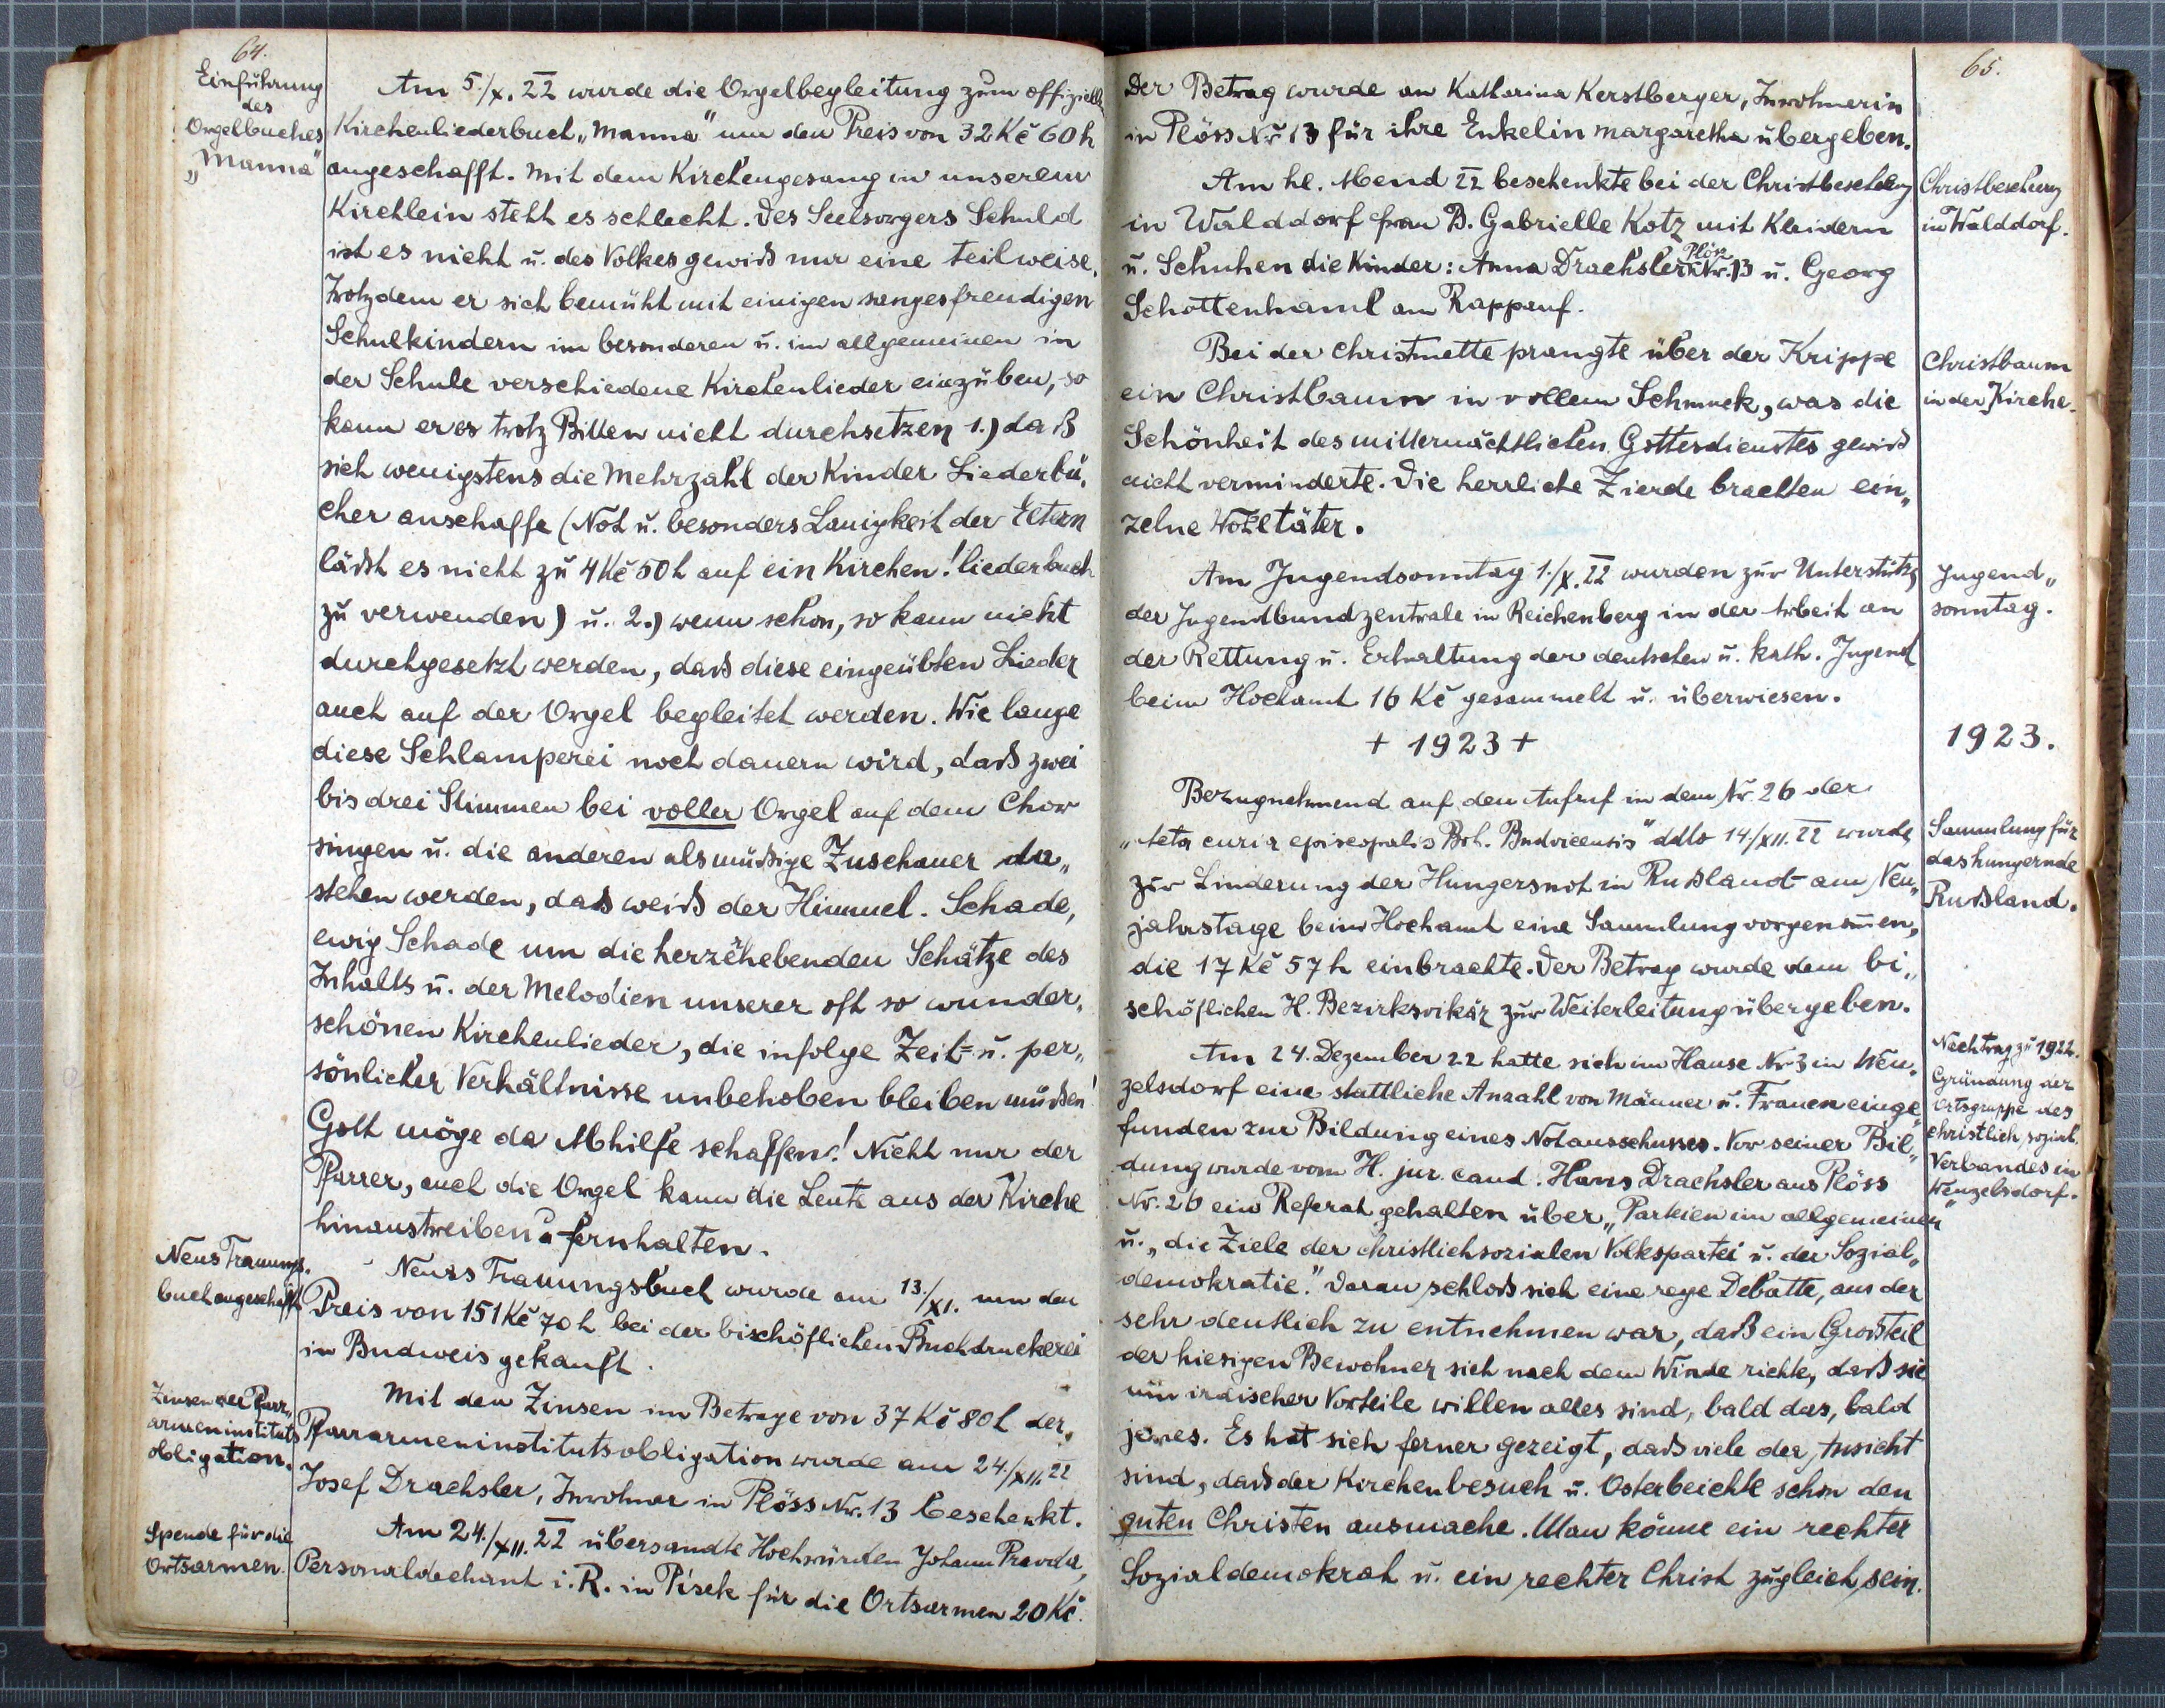 64.
Einführung
des
Orgelbuches
„Manna"
Am 5./X. 22 wurde die Orgelbegleitung zum offiziellen
Kirchenliederbuch „Manna" um den Preis von 32 Kč 60 h
angeschafft. Mit dem Kirchengesang in unserem
Kirchlein steht es schlecht. Des Seelsorgers Schuld
ist es nicht u. des Volkes gewiß nur eine teilweise.
Trotzdem er sich bemüht mit einigen sangesfreudigen
Schulkindern im besonderen u. im allgemeinen in
der Schule verschiedene Kirchenlieder einzüben, so
kann er es trotz Bitten nicht durchsetzen 1.) daß
sich wenigstens die Mehrzahl der Kinder Liederbü„
cher anschaffe (Not u. besonders Lauigkeit der Eltern
läßt es nicht zu 4 Kč 50 h auf ein Kirchen! liederbuch
zu verwenden) u. 2.) wenn schon, so kann nicht
durchgesetzt werden, daß diese eingeübten Lieder
auch auf der Orgel begleitet werden. Wie lange
diese Schlamperei noch dauern wird, daß zwei
bis drei Stimmen bei voller Orgel auf dem Chor
singen u. die anderen als müßige Zuschauer da„
stehen werden, das weiß der Himmel. Schade,
ewig Schade um die herzerhebenden Schätze des
Inhalts u. der Melodien unserer oft so wunder„
schönen Kirchenlieder, die infolge Zeit= u. per„
sönlicher Verhältnisse unbehoben bleiben müßen!
Gott möge da Abhilfe schaffen! Nicht nur der
Pfarrer, auch die Orgel kann die Leute aus der Kirche
hinaustreiben u. fernhalten.
Neues Trauungs„
buch angeschafft
Neues Trauungsbuch wurde am 13./XI. um den
Preis von 151 Kč 70 h bei der bischöflichen Buchdruckerei
in Budweis gekauft.
Zinsen der Pfarr„
armeninstituts
obligation.
Mit den Zinsen im Betrage von 37 Kč 80 h der
Pfarrarmeninstitutsobligation wurde am 24./XII. 22
Josef Drachsler, Inwohner in Plöss Nr. 13 beschenkt.
Spende für die
Ortsarmen.
Am 24./XII. 22 übersandte Hochwürden Johann Pravda,
Personaldechant i. R. in Písek für die Ortsarmen 20 Kč.
65.
Der Betrag wurde an Katharina Kerstberger, Inwohnerin
in Plöss Nr. 13 für ihre Enkelin Margaretha übergeben.
Am hl. Abend 22 beschenkte bei der Christbescherung
in Walddorf Frau B. Gabrielle Kotz mit Kleidern
u. Schuhen die Kinder: Anna Drachsler Plöss Nr. 13 u. Georg
Schottenhaml am Rappauf.
Christbescherung
in Walddorf.
Bei der Christmette prangte über der Krippe
ein Christbaum in vollem Schmuck, was die
Schönheit des mitternächtlichen Gottesdienstes gewiß
nicht verminderte. Die herrliche Zierde brachten ein„
zelne Wohltäter.
Christbaum
in der Kirche.
Am Jugendsonntag 1./X. 22 wurden zur Unterstützg
der Jugendbundzentrale in Reichenberg in der Arbeit an
der Rettung u. Erhaltung der deutschen u. kath. Jugend
beim Hochamt 16 Kč gesammelt u. überwiesen.
Jugend„
sonntag.
+ 1923 +
1923.
Bezugnehmend auf den Aufruf in dem Nr. 26 der
„Acta curia episcopalis Boh. Budvicensis" ddto 14./XII. 22 wurde
zur Linderung der Hungersnot in Rußland am Neu„
jahrstage beim Hochamt eine Sammlung vorgenommen,
die 17 Kč 57 h einbrachte. Der Betrag wurde dem bi„
schöflichen H. Bezirksvikär zur Weiterleitung übergeben.
Sammlung für
das hungernde
Rußland.
Am 24. Dezember 22 hatte sich im Hause Nr. 3 in Wen„
zelsdorf eine stattliche Anzahl von Männer u. Frauen einge„
funden zur Bildung eines Notausschusses. Vor seiner Bil„
dung wurde vom H. jur. cand. Hans Drachsler aus Plöss
Nr. 26 ein Referat gehalten über „Parteien im allgemeinen"
u. „die Ziele der christlichsozialen Volkspartei u. der Sozial„
demokratie." Daran schloß sich eine rege Debatte, aus der
sehr deutlich zu entnehmen war, daß ein Großteil
der hiesigen Bewohner sich nach dem Winde richte, daß sie
um irdischer Vorteile willen alles sind, bald das, bald
jenes. Es hat sich ferner gezeigt, daß viele der Ansicht
sind, daß der Kirchenbesuch u. Osterbeichte schon den
guten Christen ausmache. Man könne ein rechter
Sozialdemokrat u. ein rechter Christ zugleich sein.
Nachtrag zu 1922.
Gründung der
Ortsgruppe des
christlich, sozial.
Verbandes in
Wenzelsdorf.